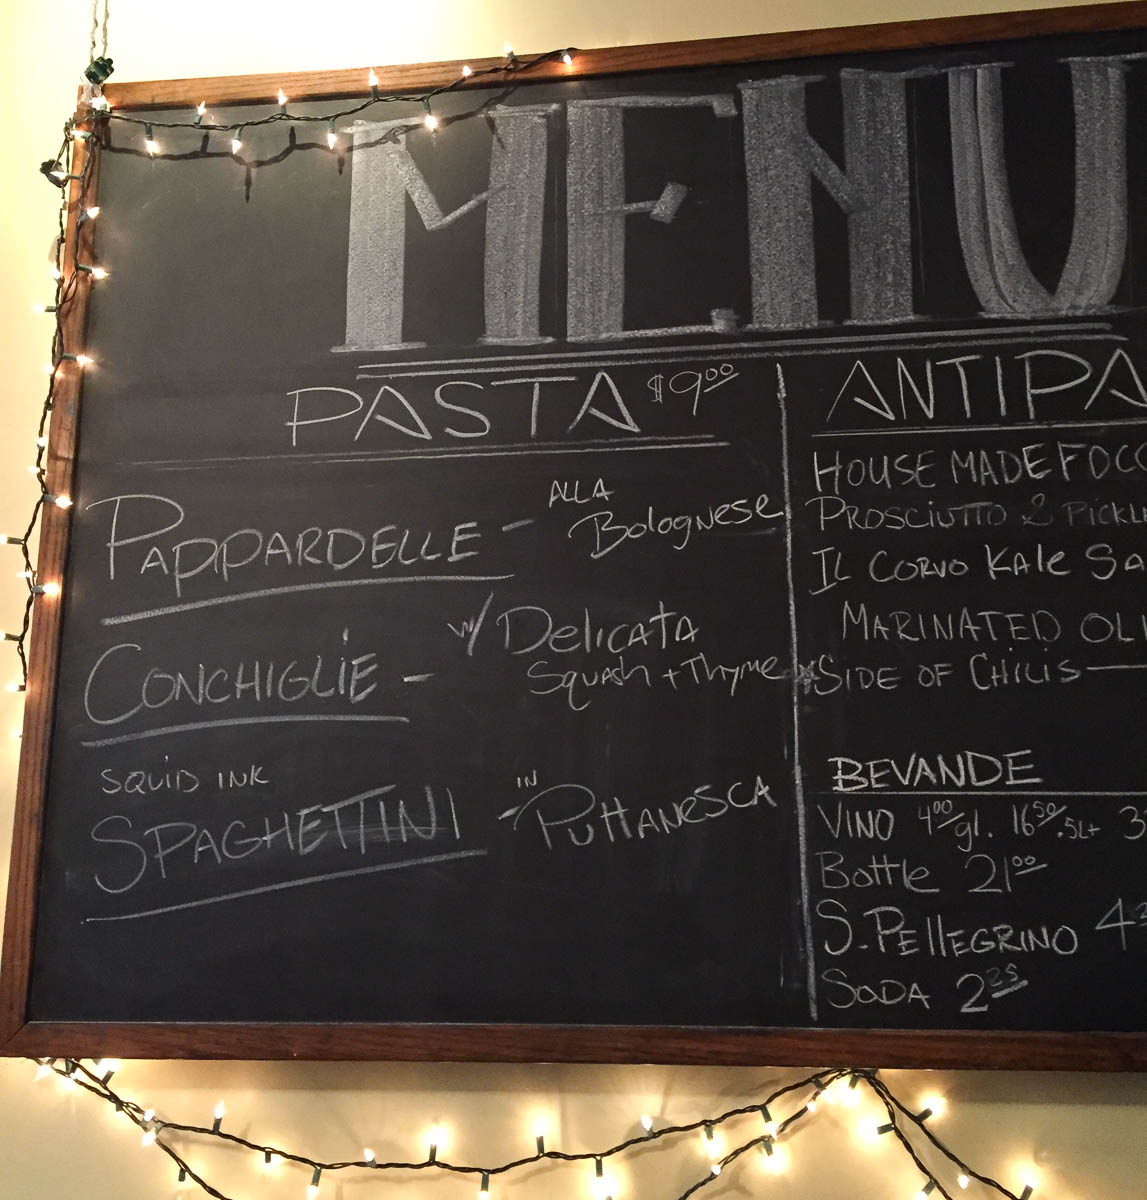 MENU
PASTA $9.00
PAPPARDELLE - ALLA Bolognese
CONCHIGLIE - W/ DELICATA
SQUASH + Thyme
SQUID INK
SPAGHETTINI - IN PUTTANESCA
ANTIPA
HOUSE MADE FOCC
PROSCIUTTO & PICKL
IL CORVO KALE SA
MARINATED OLI
SIDE OF CHILIS —
BEVANDE
VINO 4.00/gl. 16.50/.5L+ 3
Bottle 21.00
S. PELLEGRINO 4
SODA 2.25